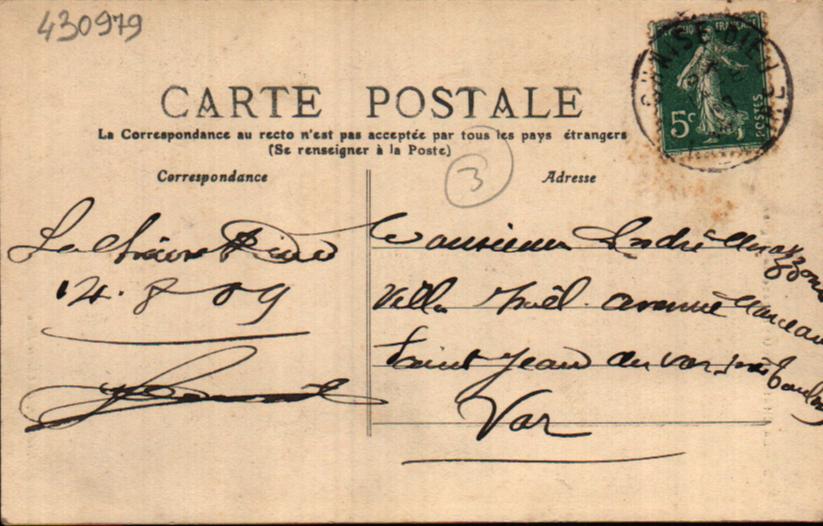 430979
CARTE POSTALE
La Correspondance au recto n'est pas acceptée par tous les pays étrangers
(Se renseigner à la Poste)
3
Correspondance
Adresse
5c
POSTES
La Chaise Dieu
14-8-09
Monsieur André
Villa Noël. avenue Marceau
Saint Jean du Var, près Toulon
Var